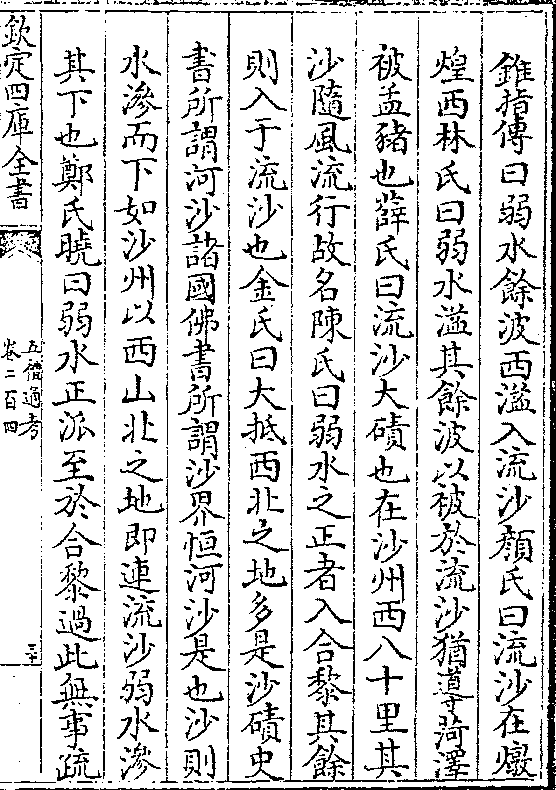 錐指傳曰弱水餘波西溢入流沙顔氏曰流沙在燉
煌西林氏曰弱水溢其餘波以被於流沙猶導菏澤
被孟豬也薛氏曰流沙大磧也在沙州西八十里其
沙隨風流行故名陳氏曰弱水之正者入合黎其餘
則入于流沙也金氏曰大抵西北之地多是沙磧史
書所謂河沙諸國佛書所謂沙界恒河沙是也沙則
水滲而下如沙州以西山北之地即連流沙弱水滲
其下也鄭氏曉曰弱水正派至於合黎過此無事疏
欽定四庫全書
五禮通考
卷二百四
三十